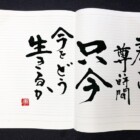 尊時間
只今
今をどう
生きるか